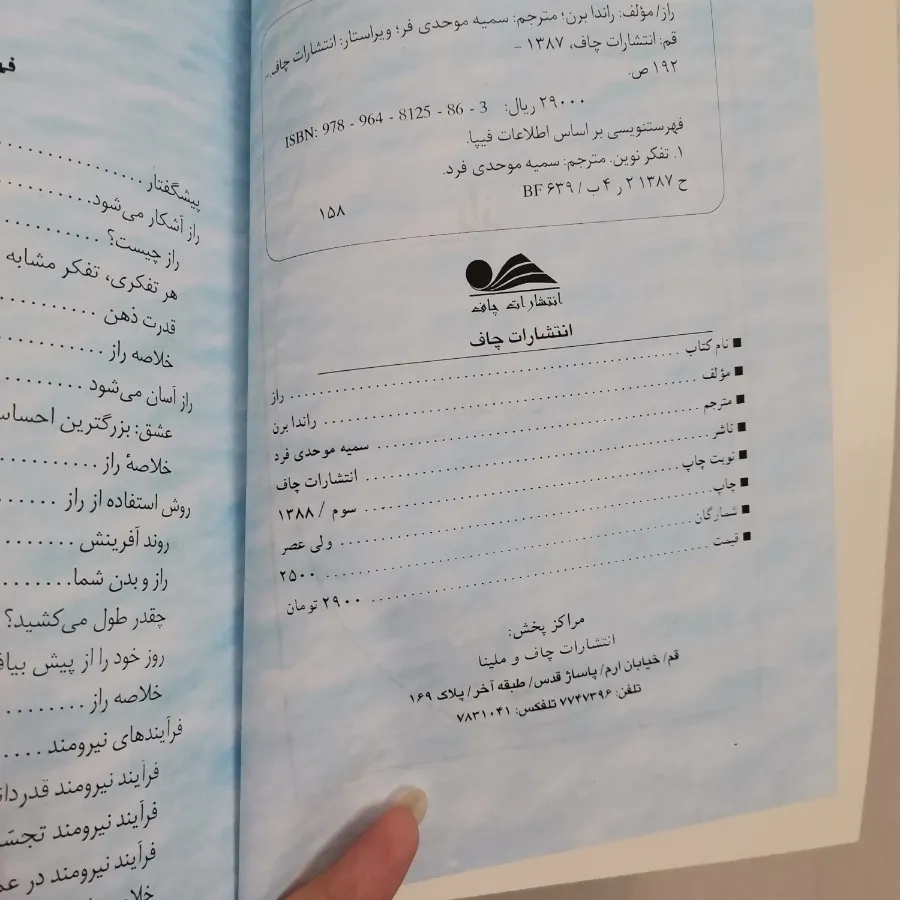 راز/ مؤلف: راندا برن؛ مترجم: سمیه موحدی فر؛ ویراستار: انتشارات چاف.–
قم: انتشارات چاف، ۱۳۸۷ –
۱۹۲ ص.
۲۹۰۰۰ ریال: ISBN: 978 - 964 - 8125 - 86 - 3
فهرستنویسی بر اساس اطلاعات فیپا.
۱. تفکر نوین. مترجم: سمیه موحدی فرد.
ح ۱۳۸۷ ۲ ر ۴ ب / BF ۶۳۹
۱۵۸
انتشارات چاف
انتشارات چاف
■ نام کتاب .......... راز
■ مؤلف .......... راندا برن
■ مترجم .......... سمیه موحدی فرد
■ ناشر .......... انتشارات چاف
■ نوبت چاپ .......... سوم / ۱۳۸۸
■ چاپ .......... ولی عصر
■ شمارگان .......... ۲۵۰۰
■ قیمت .......... ۲۹۰۰ تومان
مراکز پخش:
انتشارات چاف و ملینا
قم/ خیابان ارم/ پاساژ قدس/ طبقه آخر/ پلاک ۱۶۹
تلفن: ۷۷۴۷۳۹۶ تلفکس: ۷۸۳۱۰۴۱
پیشگفتار ..........
راز آشکار می‌شود ..........
راز چیست؟ ..........
هر تفکری، تفکر مشابه
قدرت ذهن ..........
خلاصه راز ..........
راز آسان می‌شود ..........
عشق: بزرگترین
خلاصهٔ راز ..........
روش استفاده از راز ..........
روند آفرینش ..........
راز و بدن شما ..........
چقدر طول می‌کشید؟
روز خود را از پیش
خلاصه راز ..........
فرآیندهای نیرومند ..........
فرآیند نیرومند
فرآیند نیرومند
فرآیند نیرومند در